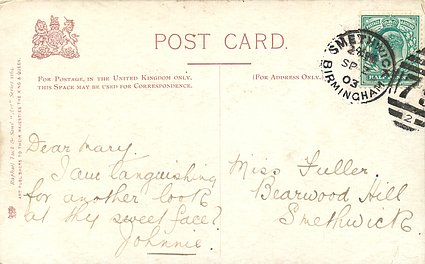 POST CARD.
FOR POSTAGE, IN THE UNITED KINGDOM ONLY,
THIS SPACE MAY BE USED FOR CORRESPONDENCE.
(FOR ADDRESS ONLY.)
SMETHWICK
SP
03
BIRMINGHAM
HALFPENNY
2
Raphael Tuck & Sons'
ART PUBLISHERS TO THEIR MAJESTIES THE KING & QUEEN.
Dear Mary.
I am languishing
for another look
at thy sweet face?
Johnnie.
Miss Fuller.
Bearwood Hill
Smethwick.